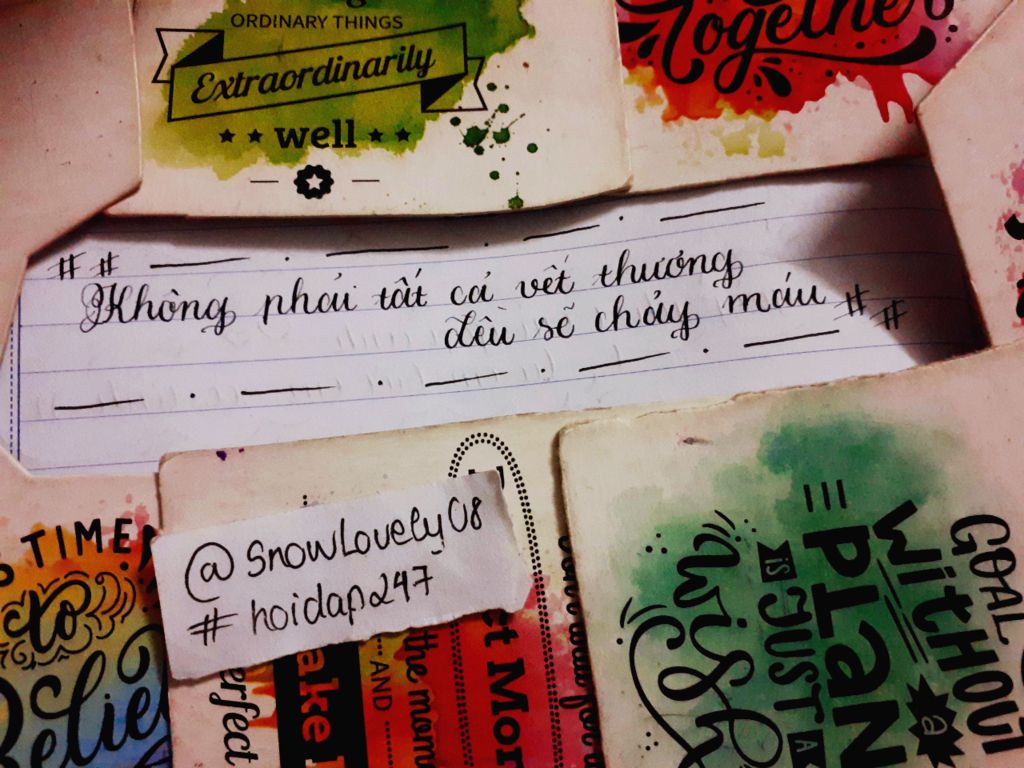 ORDINARY THINGS
Extraordinarily
well
Together
# #
Không phải tất cả vết thương
đều sẽ chảy máu # #
@SnowLovely08
# hoidap247
TIME
to
Believe
erfect
ake
AND
the mom
ct Mor
GOAL
WITHOUT
a
PLAN
IS JUST A
wish